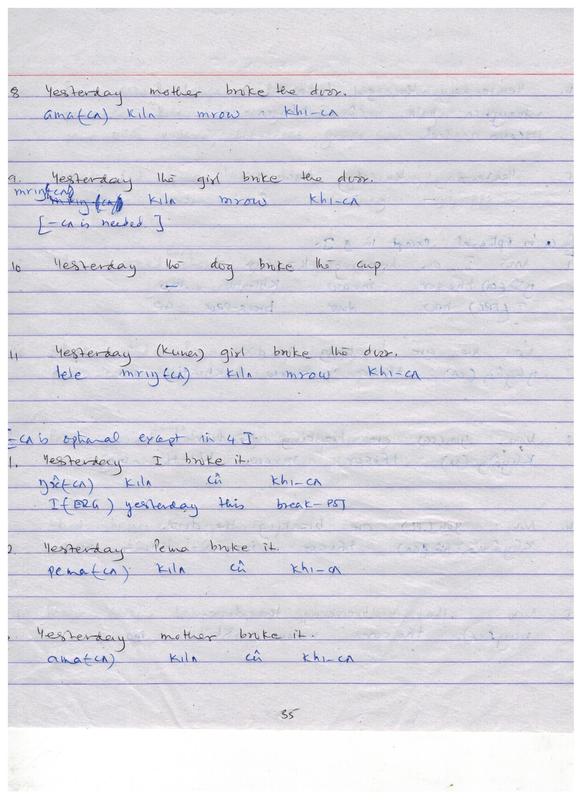 8 Yesterday mother broke the door.
ama(-cʌ) kilʌ mrow khi-cʌ
9. Yesterday the girl broke the door.
mriŋ(-cʌ) kilʌ mrow khi-cʌ
[-cʌ is needed]
10 Yesterday the dog broke the cup.
11 Yesterday (Kunes) girl broke the door.
tele mriŋ(-cʌ) kilʌ mrow khi-cʌ
[-cʌ is optional except in 4]
1. Yesterday I broke it.
kilʌ cû khi-cʌ
I(ERG) yesterday this break-PST
2. Yesterday Pema broke it.
pema(-cʌ) kilʌ cû khi-cʌ
Yesterday mother broke it.
ama(-cʌ) kilʌ cû khi-cʌ
35